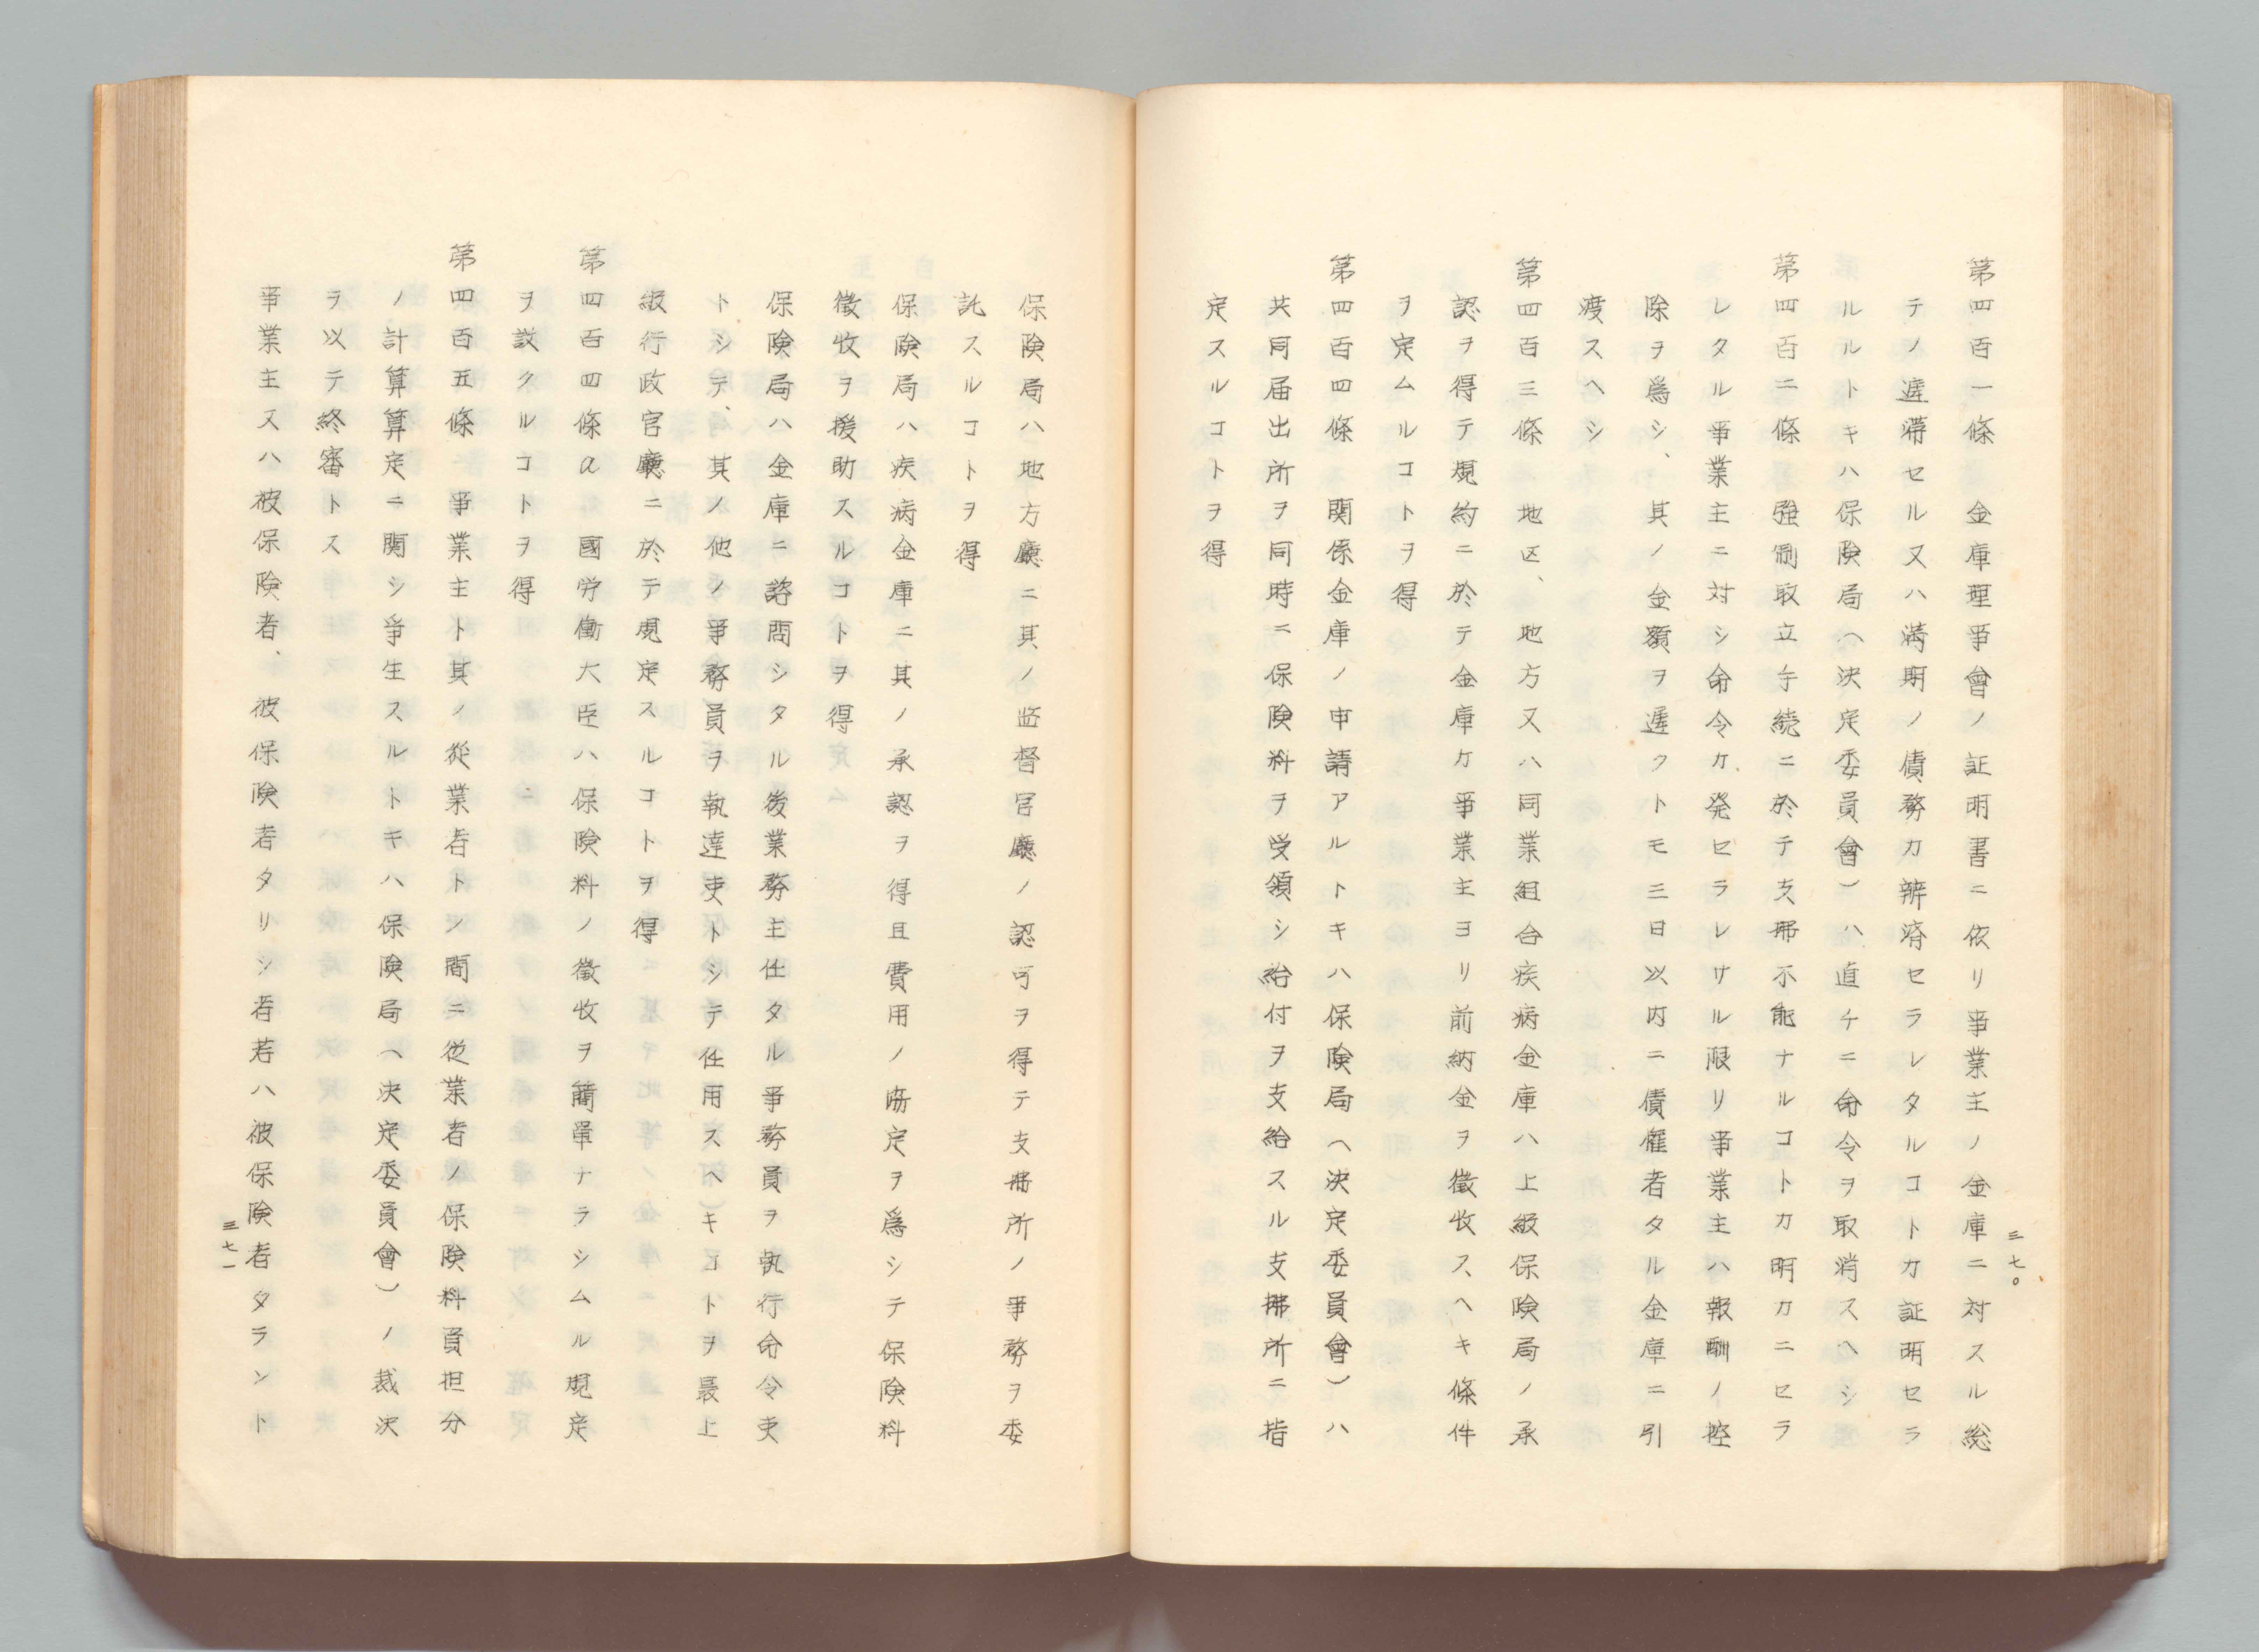 三七〇
第四百一條　金庫理事會ノ証明書ニ依リ事業主ノ金庫ニ対スル総
テノ遅滞セル又ハ満期ノ債務カ辨済セラレタルコトカ証明セラ
ルルトキハ保険局（決定委員會）ハ直チニ命令ヲ取消スヘシ
第四百二條　強制取立手続ニ於テ支拂不能ナルコトカ明カニセラ
レタル事業主ニ対シ命令カ発セラレサル限リ事業主ハ報酬ノ控
除ヲ為シ、其ノ金額ヲ遅クトモ三日以内ニ債権者タル金庫ニ引
渡スヘシ
第四百三條　地区、地方又ハ同業組合疾病金庫ハ上級保険局ノ承
認ヲ得テ規約ニ於テ金庫カ事業主ヨリ前納金ヲ徴收スヘキ條件
ヲ定ムルコトヲ得
第四百四條　関係金庫ノ申請アルトキハ保険局（決定委員會）ハ
共同届出所ヲ同時ニ保険料ヲ受領シ給付ヲ支給スル支拂所ニ指
定スルコトヲ得
保険局ハ地方廳ニ其ノ監督官廳ノ認可ヲ得テ支拂所ノ事務ヲ委
託スルコトヲ得
保険局ハ疾病金庫ニ其ノ承認ヲ得且費用ノ協定ヲ為シテ保険料
徴收ヲ援助スルコトヲ得
保険局ハ金庫ニ諮問シタル後業務主任タル事務員ヲ執行命令吏
トシテ、其ノ他ノ事務員ヲ執達吏トシテ任用スヘキコトヲ最上
級行政官廳ニ於テ規定スルコトヲ得
第四百四條a　國労働大臣ハ保険料ノ徴收ヲ簡単ナラシムル規定
ヲ設クルコトヲ得
第四百五條　事業主ト其ノ従業者トノ間ニ従業者ノ保険料負担分
ノ計算算定ニ関シ争生スルトキハ保険局（決定委員會）ノ裁決
ヲ以テ終審トス
事業主又ハ被保険者、被保険者タリシ者若ハ被保険者タラント
三七一